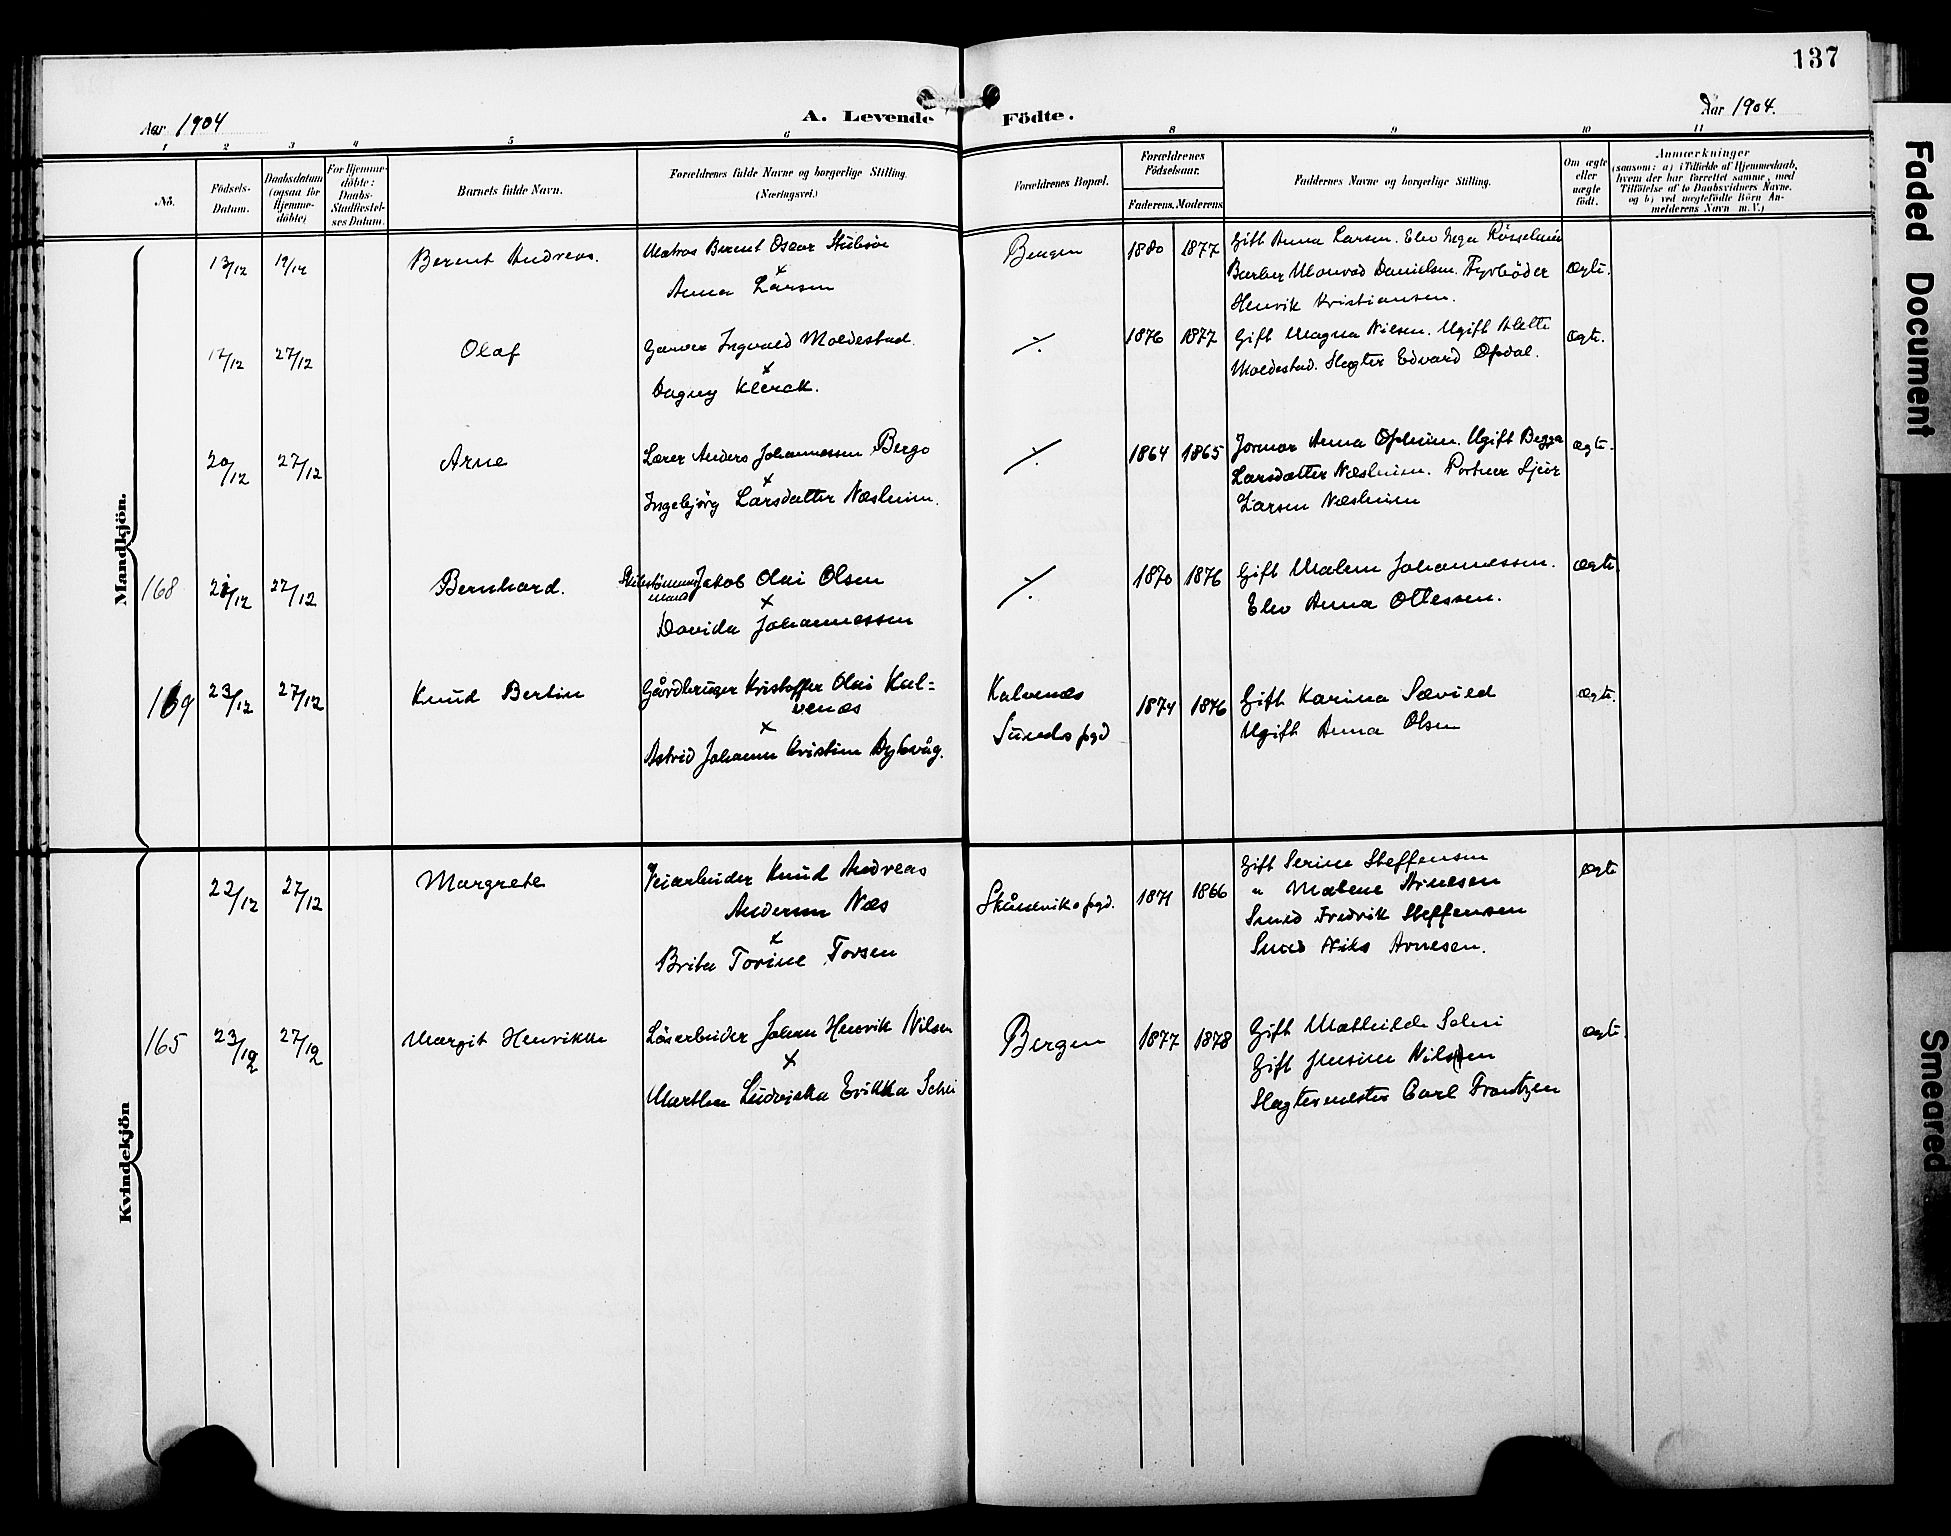 137
Aar 1904
A. Levende Födte.
Aar 1904.
1 2 3 4 5 6 8 9 10 11
No.
Födsels-Datum.
Daabsdatum (ogsaa for Hjemme-döbte)
For Hjemme-döbte: Daabs-Stadfæstel-ses Datum.
Barnets fulde Navn.
Forældrenes fulde Navne og borgerlige Stilling.
(Næringsvei.)
Forældrenes Bopæl.
Forældrenes Födselsaar.
Faderens. Moderens
Faddernes Navne og borgerlige Stilling.
Om ægte eller uægte født.
Anmærkninger
(saasom: a) i Tilfælde af Hjemmedaab, hvem der har forrettet samme, med Tilföielse af to Daabsvidners Navne, og b) ved uægtefödte Börn Anmelderens Navn m. V.)
Mandkjön.
13/12 19/12 Berent Andreas.
Matros Berent Oscar
x
Anna Larsen
Bergen 1880 1877
Gift Anna Larsen. Elev Inga
Barber Monrad Danielsen. Fyrböder
Henrik Kristiansen.
Ægte.
17/12 27/12 Olaf
Garver Ingvald Moldestad.
x
Dagny Klerck.
./. 1876 1877
Gift Magna Nilsen. Ugift Alette
Moldestad. Slagter Edvard Opdal.
Ægte.
20/12 27/12 Arne
Lærer Anders Johannessen Berge
x
Ingebjörg Larsdatter Næsheim.
./. 1864 1865
Jormor Anna Opheim. Ugift
Larsdatter Næsheim. Portner
Larsen Næsheim
Ægte.
168 27/12 Bernhard.
Jakob Olai Olsen
x
Davida Johannessen
./. 1870 1876
Gift Malene Johannessen.
Elev Anna Ottessen.
Ægte.
169 23/12 27/12 Knud Bertin
Gårdbruger Kristoffer Olai Kal=
venæs
x
Astrid Johanne Kristine Dybvåg.
Kalvenæs
Sunds pgd
1874 1876
Gift Karina Sævild
Ugift Anna Olsen
ægte.
Kvindekjön
22/12 27/12 Margrete
Veiarbeider Knud Andreas
Andersen Næs
x
Brita Torine Torsen
Skånevik pgd. 1871 1866
Gift Serine Steffensen
" Malene Arnesen
Smed Fredrik Steffensen
Smed Nils Arnesen.
ægte
165 23/12 27/12 Margit Henrikke
Löсarbeider Johan Henrik Nilsen
x
Marthe Ludvikka Erikka Schei
Bergen 1877 1878
Gift Mathilde Schei
Gift Jensine Nilsen
Slagtermester Carl Frantzen
ægte.
Faded Document
Smeared